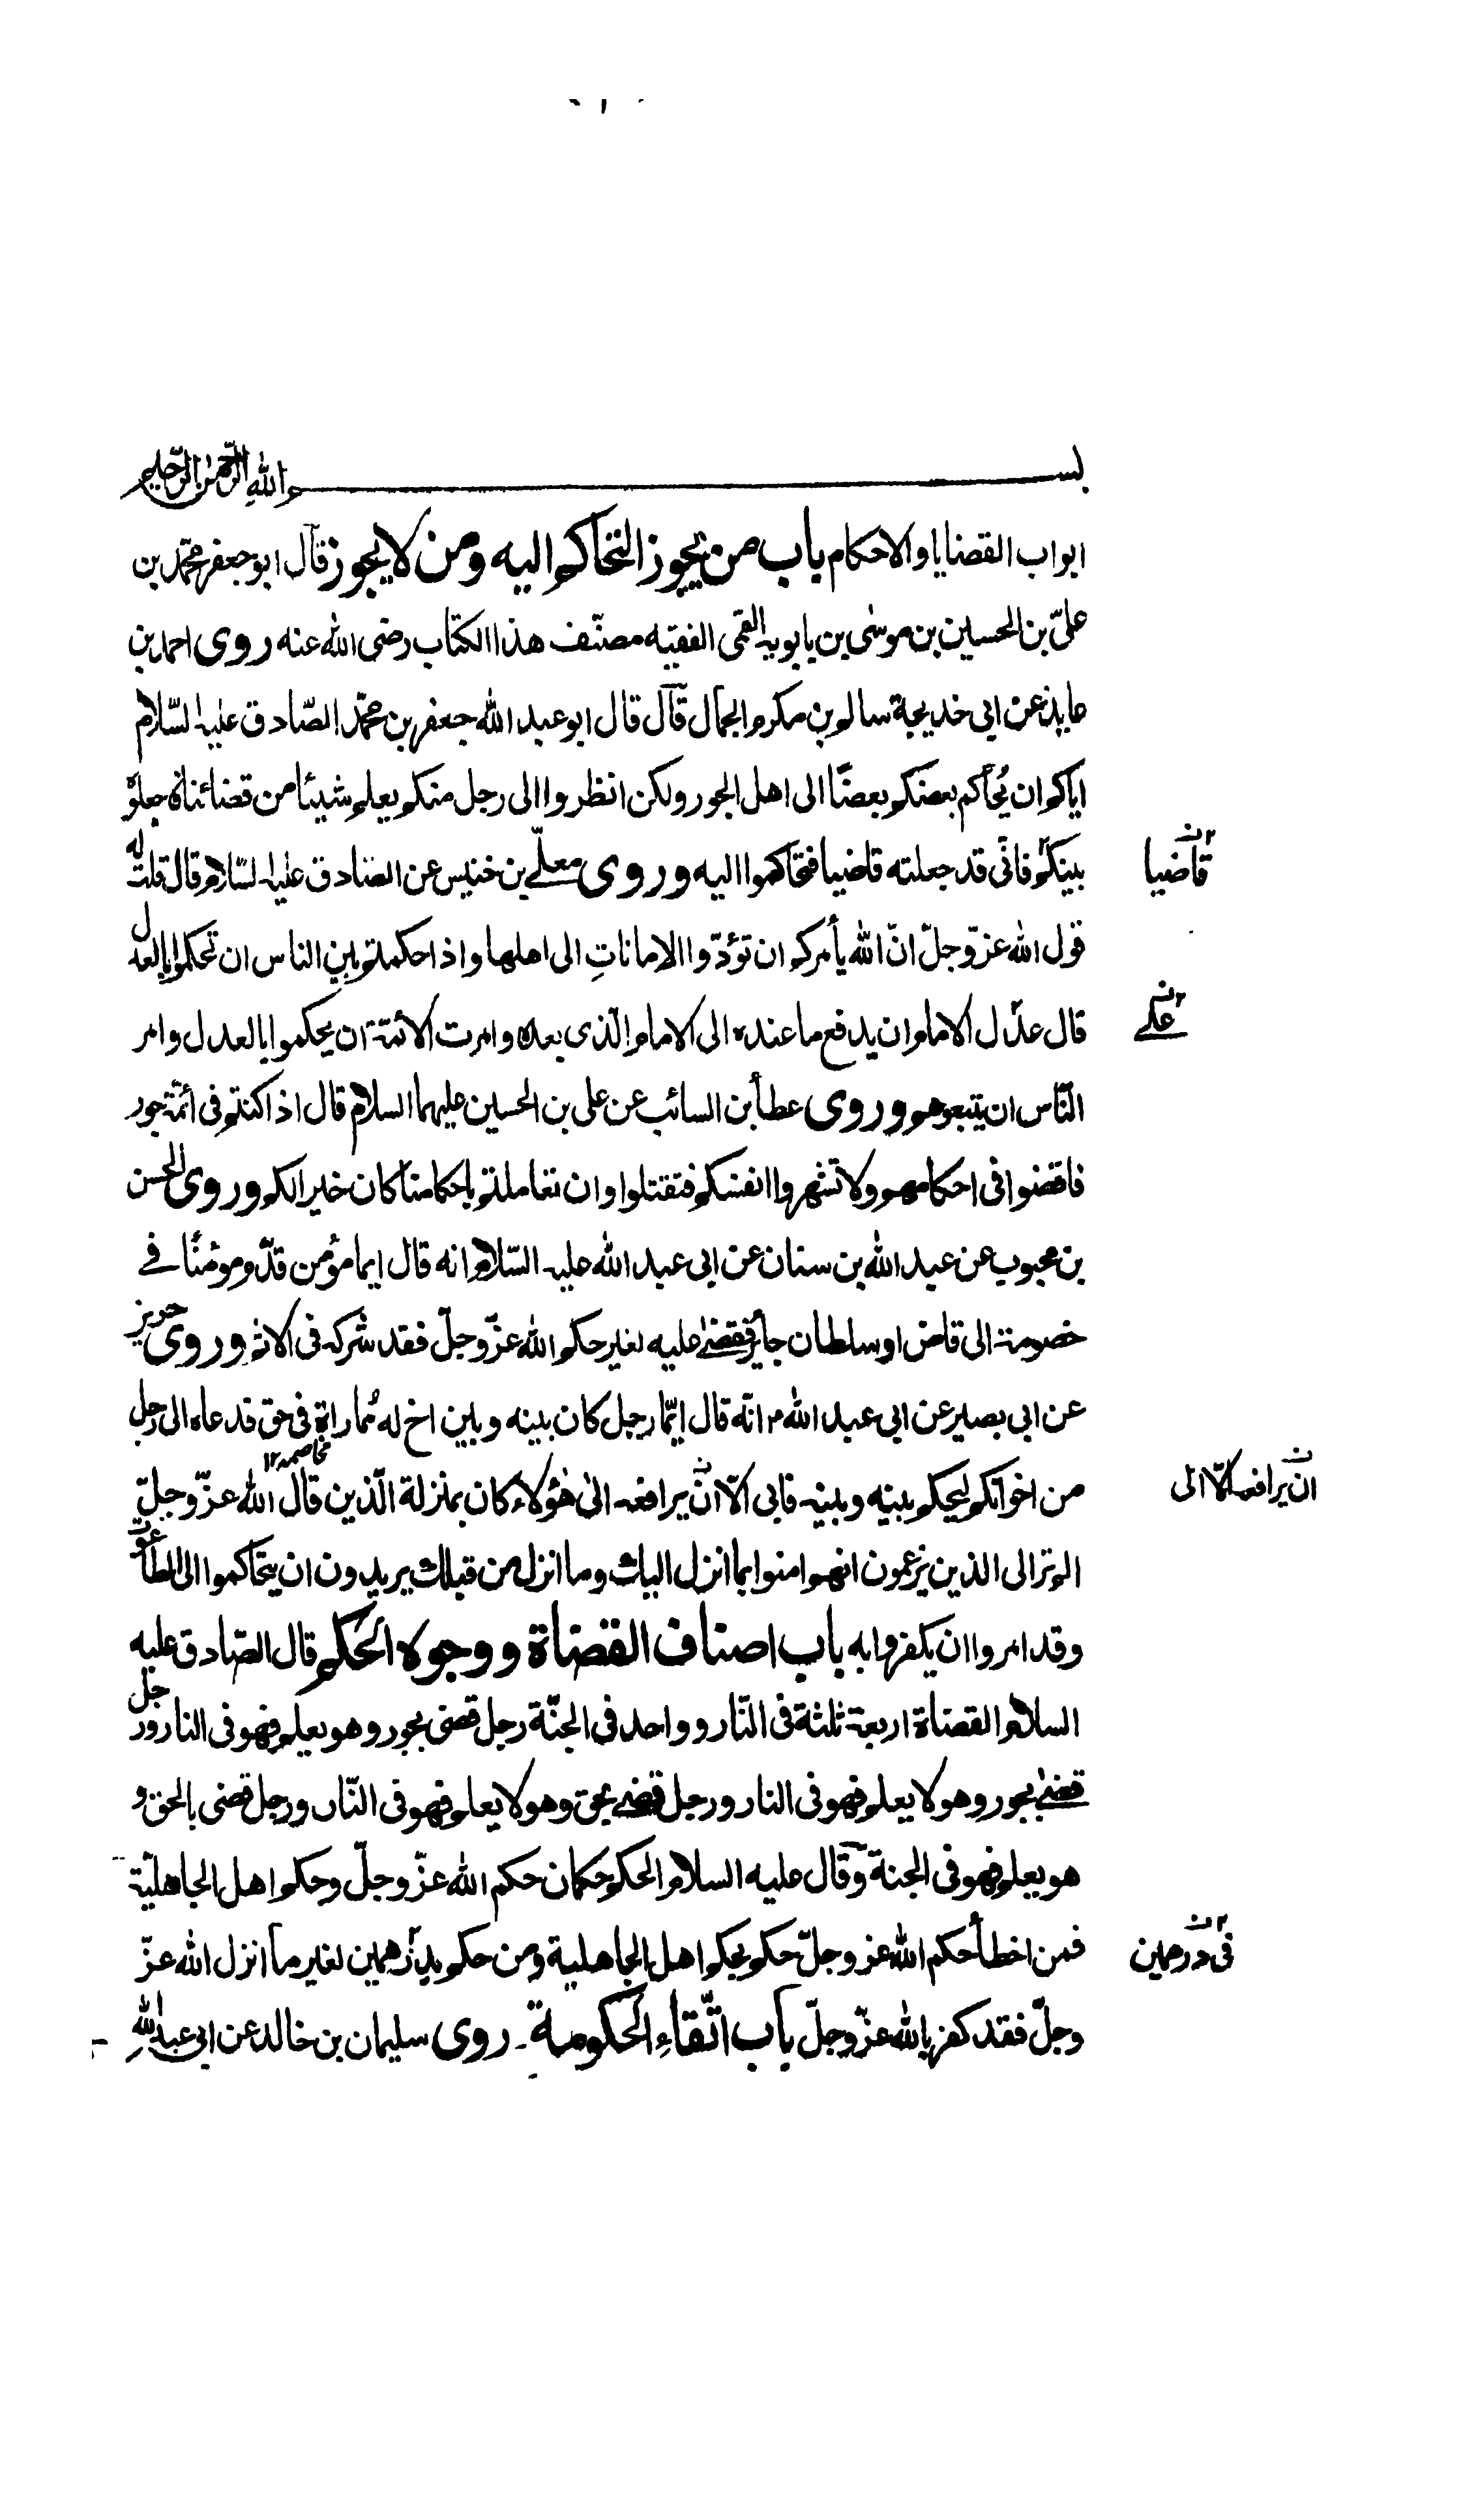 بسم الله الرحمن الرحيم
ابواب القضايا والاحكام باب من يجوز التحاكم اليه ومن لا يجوز قال ابو جعفر محمد بن
علىّ بن الحسين بن موسٰى بن بابويه القمى الفقيه مصنّف هذا الكتاب رضى الله عنه روى احمد بن
عايذ عن ابى خديجة سالم بن مكرم الجمال قال قال ابو عبد الله جعفر بن محمّد الصّادق عليه السّلام
اياكم ان يُحاكم بعضكم بعضًا الى اهل الجور ولكن انظروا الى رجل منكم يعلم شيئا من قضائنا فاجعلوه
بينكم فانّى قد جعلته قاضيا فتحاكموا اليه وروى معلّے بن خنيس عن الصّادق عليه السّلام قال قلت له
قاضيا
قول الله عزّ وجلّ انّ الله يأمركم ان تؤدّوا الاماناتِ الى اهلها واذا حكمتم بين الناس ان تحكموا بالعدل
قال عدّل الامام ان يدفع ما عنده الى الامام الّذى بعده وامرت الائمّة ان يحكموا بالعدل وامر
علے
النّاس ان يتبعوهم وروى عطأ بن السائب عن على بن الحسين عليهما السلام قال اذا كنتم فى ائمّة جور
فاقضوا فى احكامهم ولا تشهروا انفسكم فتقتلوا وان تعاملتم باحكامنا كان خيرا لكم وروى الحسن
بن محبوب عن عبد الله بن سنان عن ابى عبد الله عليه السّلام انه قال ايما مؤمن قدّم مومنًا فے
خصومة الى قاض او سلطان جائر فقضےٰ عليه بغير حكم الله عزّ وجلّ فقد شركه فى الاثم وروى حريز
عن ابى بصير عن ابى عبد الله ؑ انّه قال ايّما رجل كان بينه وبين اخ له مُماراة فى حق فدعاه الى رجل
مخاصمه ١٢
من اخوانكم ليحكم بينه وبينه فابى الّا انّ يرافعه الىٰ هٰؤلاء كان بمنزلة الّذين قال الله عزّ وجلّ
ان يرافعه الّا الى
الم تر الى الذين يزعمون انهم امنوا بما انزل اليك وما انزل من قبلك يريدون ان يتحاكموا الى الطاغوت
وقد امروا ان يكفروا به باب اصناف القضاة ووجوه الحكم قال الصّادق عليه
السلام القضاة اربعة ثلثة فى النّار وواحد فى الجنّة رجل قضى بجور وهو يعلم فهو فى النار ورجل
قضےٰ بجور وهو لا يعلم فهو فى النار ورجل قضےٰ بحق وهو لا يعلم فهو فى النّار ورجل قضى بالحق و
هو يعلم فهو فى الجنة وقال عليه السلام الحكم حكمان حكم الله عزّ وجلّ وحكم اهل الجاهليّة
فمن اخطأ حكم الله عز وجلّ حكم بحكم اهل الجاهلية ومن حكم بدرهمين بغير ما انزل الله عزّ
فى درهمين
وجلّ فقد كفر بالله عزّ وجلّ باب اتّقاءِ الحكومة روى سليمان بن خالد عن ابى عبد اللهِ